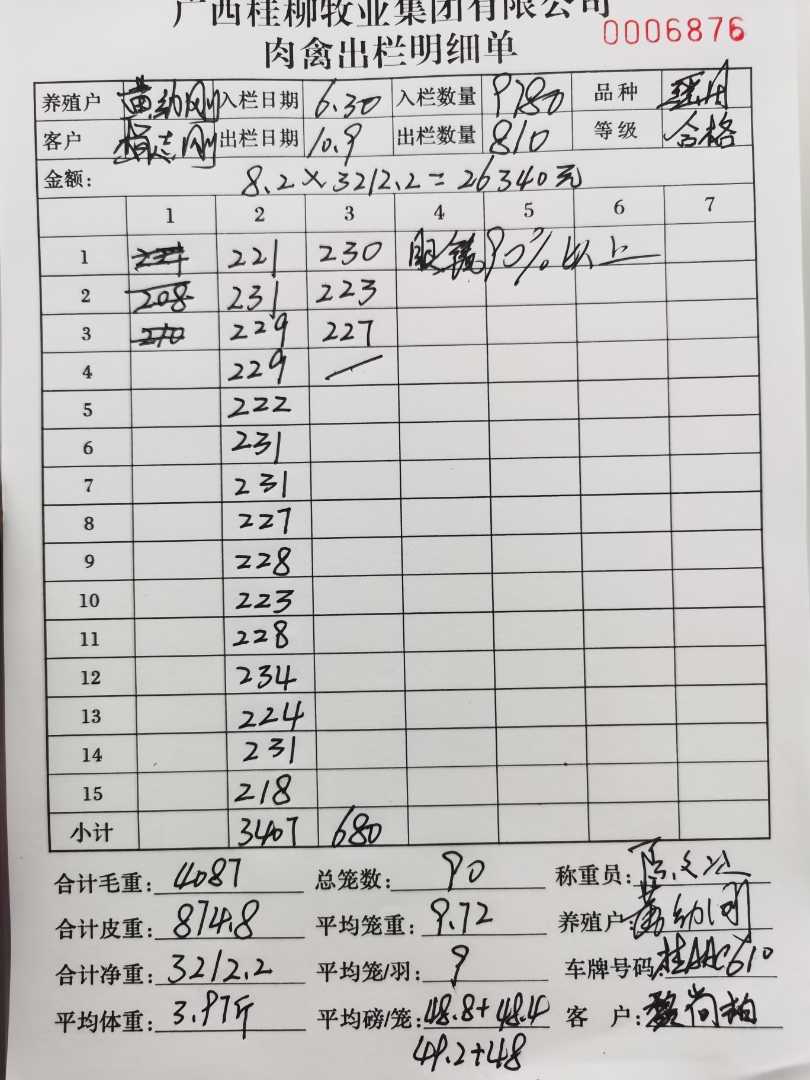 广西桂柳牧业集团有限公司
肉禽出栏明细单 0006876
养殖户 黄幼刚 入栏日期 6.30 入栏数量 9780 品种
客户 出栏日期 10.9 出栏数量 810 等级 合格
金额: 8.2×3212.2=26340元
1 2 3 4 5 6 7
1 221 230 眼镜90%以上
2 208 231 223
3 210 229 227
4 229
5 222
6 231
7 231
8 227
9 228
10 223
11 228
12 234
13 224
14 231
15 218
小计 3407 680
合计毛重: 4087 总笼数: 90 称重员:
合计皮重: 874.8 平均笼重: 9.72 养殖户:
合计净重: 3212.2 平均笼/羽: 9 车牌号码: 桂AAC610
平均体重: 3.97斤 平均磅/笼: 48.8+48.4 客 户:
49.2+48